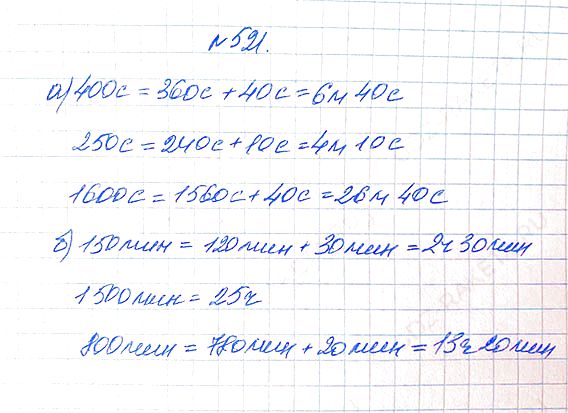 №521.
а) 400с = 360с + 40с = 6м 40с
250с = 240с + 10с = 4м 10с
1600с = 1560с + 40с = 26м 40с
б) 150мин = 120мин + 30мин = 2ч 30мин
1500мин = 25ч
800мин = 780мин + 20мин = 13ч 20мин